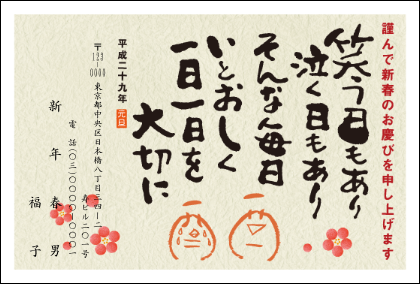 謹んで新春のお慶びを申し上げます
笑う日もあり
泣く日もあり
そんな毎日
いとおしく
一日一日を
大切に
平成二十九年 元旦
〒123-0000
東京都中央区日本橋八丁目三四-二
寿ビル二〇一号
電話(〇三)〇〇〇〇-〇〇〇一
新年 春男
福子